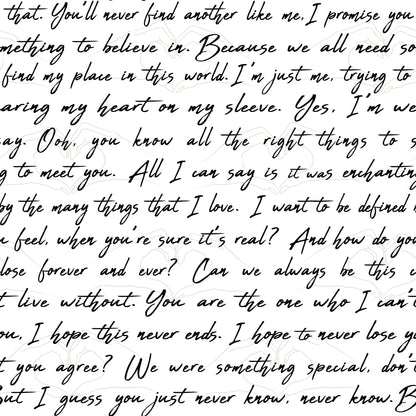 that. You'll never find another like me, I promise you
mething to believe in. Because we all need so
find my place in this world. I'm just me, trying to
aring my heart on my sleeve. Yes, I'm we
ay. Ooh, you know all the right things to s
g to meet you. All I can say is it was enchantin
by the many things that I love. I want to be defined
u feel, when you're sure it's real? And how do yo
lose forever and ever? Can we always be this c
t live without. You are the one who I can't
ou, I hope this never ends. I hope to never lose yo
t you agree? We were something special, don'
But I guess you just never know, never know. B